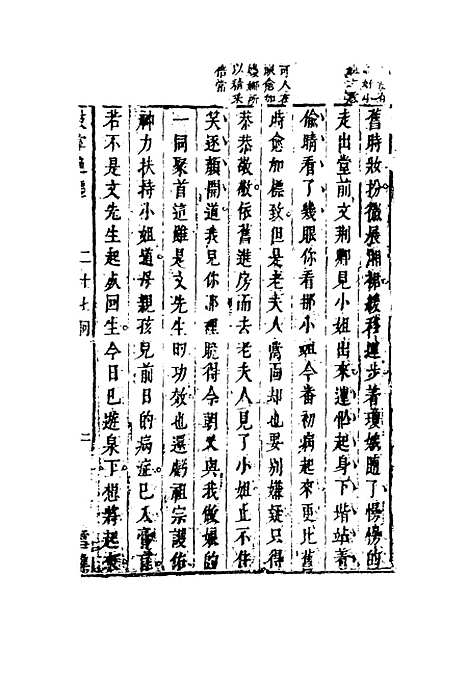 可人在
以猜來
倍常
舊時妝扮微展湘裙緩移蓮步著瓊娥隨了慢慢的
走出堂前文荆卿見小姐出來連忙起身下堦站着
偷睛看了幾眼你看那小姐今番初病起來更比舊
時愈加標致但是老夫人當面却也要别嫌疑只得
恭恭敬敬依舊進房而去老夫人見了小姐止不住
笑逐顏開道我見你那裡脆得今朝又與我做娘的
一同聚首這雖是文先生的功效也還虧祖宗護佑
神力扶持小姐道母親孩兒前日的病症已入膏肓
若不是文先生起死回生今日已遊泉下想將起來
二十七囘
二
雪集